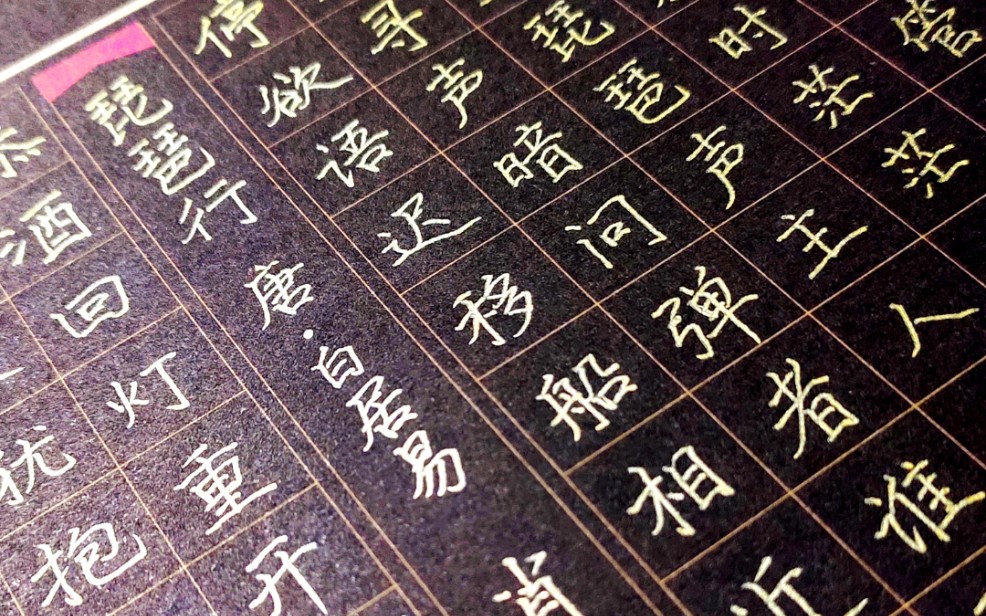 管
时茫茫
琵琶声主人
寻声暗问弹者谁
停欲语迟移船相
琵琶行 唐·白居易
酒回灯重开
犹抱